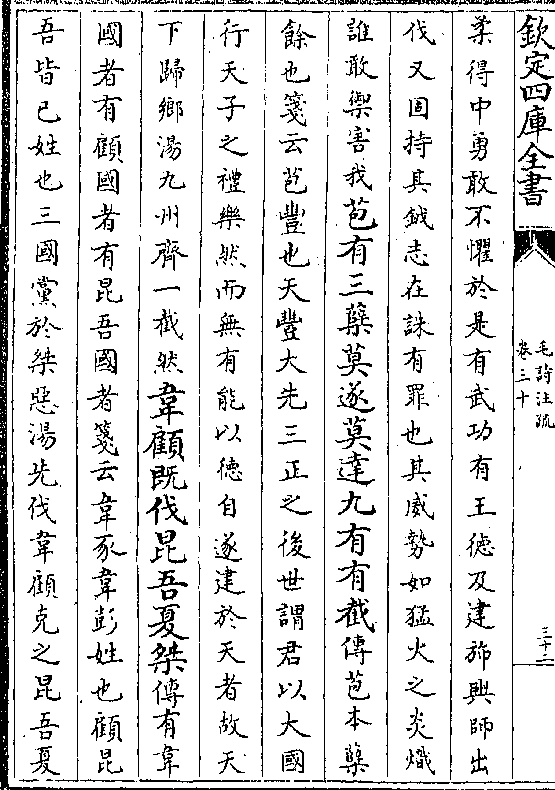 欽定四庫全書
毛詩注疏
卷三十
三十二
柔得中勇敢不懼於是有武功有王德及建斾興師出
伐又固持其鉞志在誅有罪也其威勢如猛火之炎熾
誰敢禦害我苞有三蘖莫遂莫達九有有截傳苞本蘖
餘也箋云苞豐也天豐大先三正之後世謂君以大國
行天子之禮樂然而無有能以德自遂達於天者故天
下歸鄉湯九州齊一截然韋顧既伐昆吾夏桀傳有韋
國者有顧國者有昆吾國者箋云韋豕韋彭姓也顧昆
吾皆已姓也三國黨於桀惡湯先伐韋顧克之昆吾夏